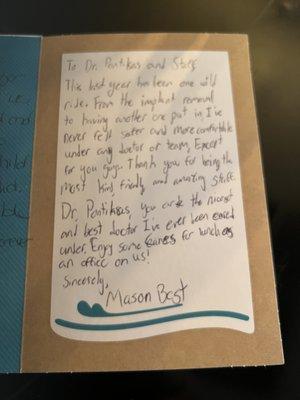 To Dr. Pontikas and Staff
This last year has been one wild
ride. From the implant removal
to having another one put in, I've
never felt safer and more comfortable
under any doctor or team, Except
for you guys. Thank you for being the
most kind, friendly and amazing staff.
Dr. Pontikas, you are the nicest
and best doctor I've ever been
under. Enjoy some for lunch as
an office on us!
Sincerely,
Mason Best